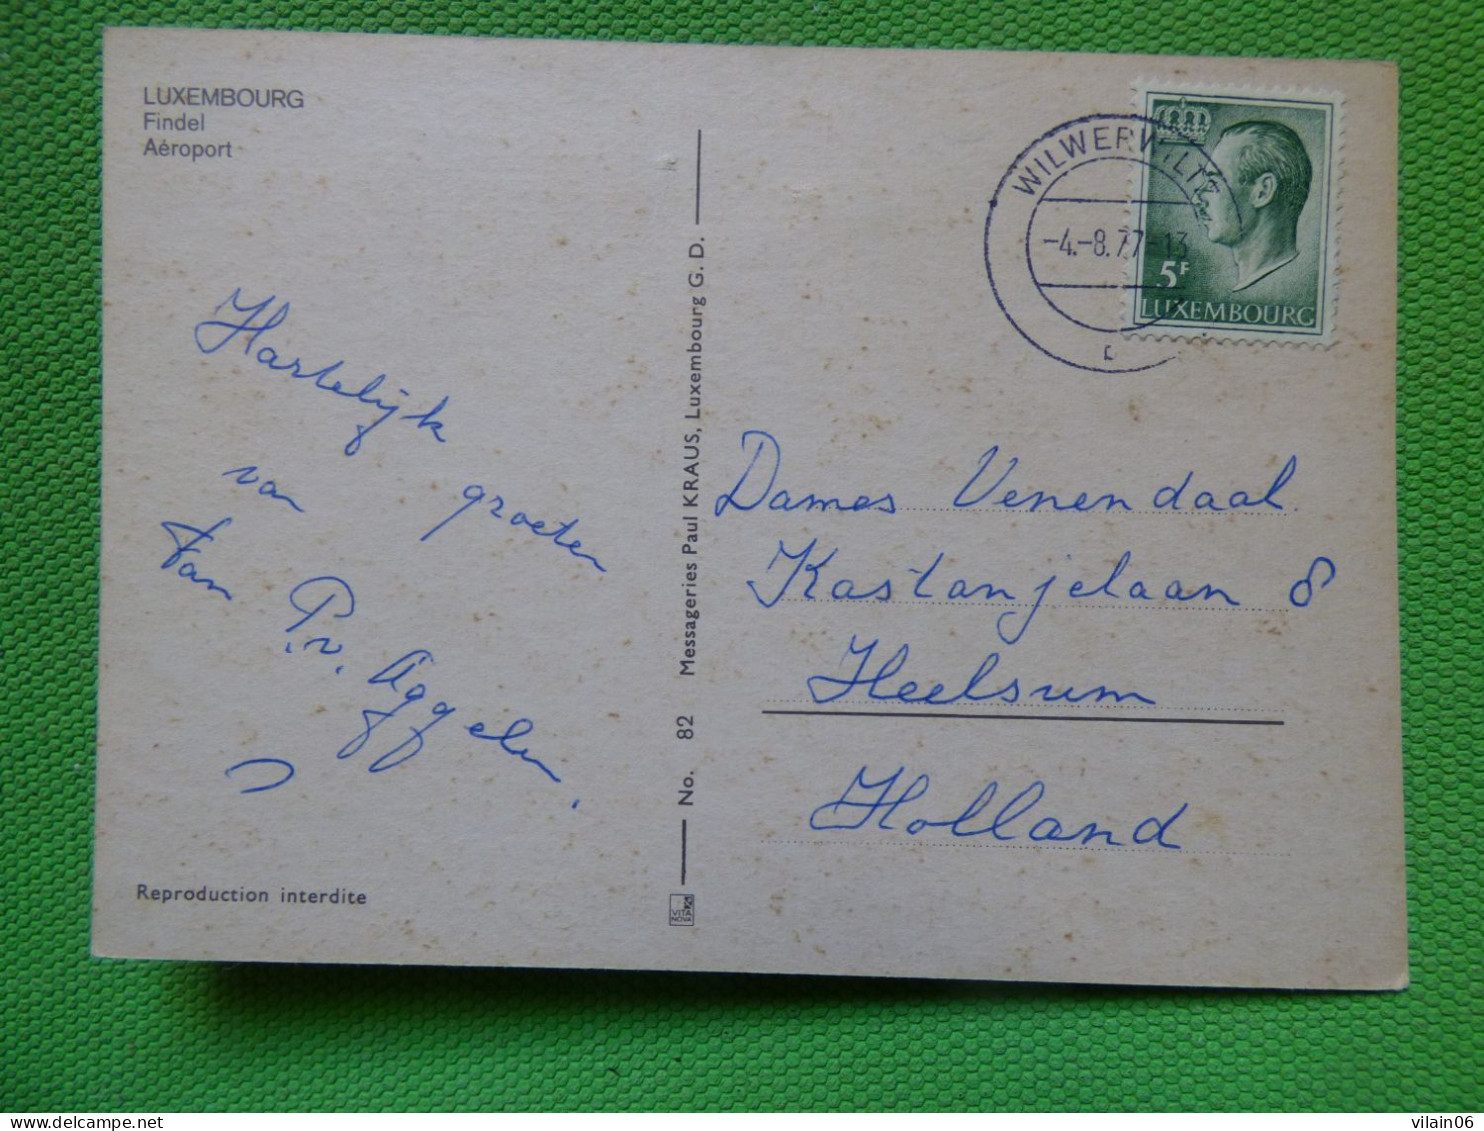 LUXEMBOURG
Findel
Aéroport
Hartelijk
groeten
van
Fam
P. v. Aggelen.
Reproduction interdite
No. 82 Messageries Paul KRAUS, Luxembourg G. D.
VITA
NOVA
WILWERWILTZ
-4.-8.77-13
5F
LUXEMBOURG
Dames Venendaal
Kastanjelaan 8
Heelsum
Holland
delcampe.net
vilain06